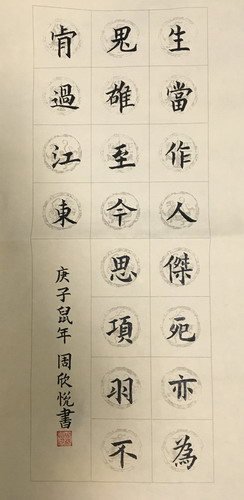 生當作人傑死亦為
鬼雄至今思項羽不
肯過江東
庚子鼠年 周欣悅書